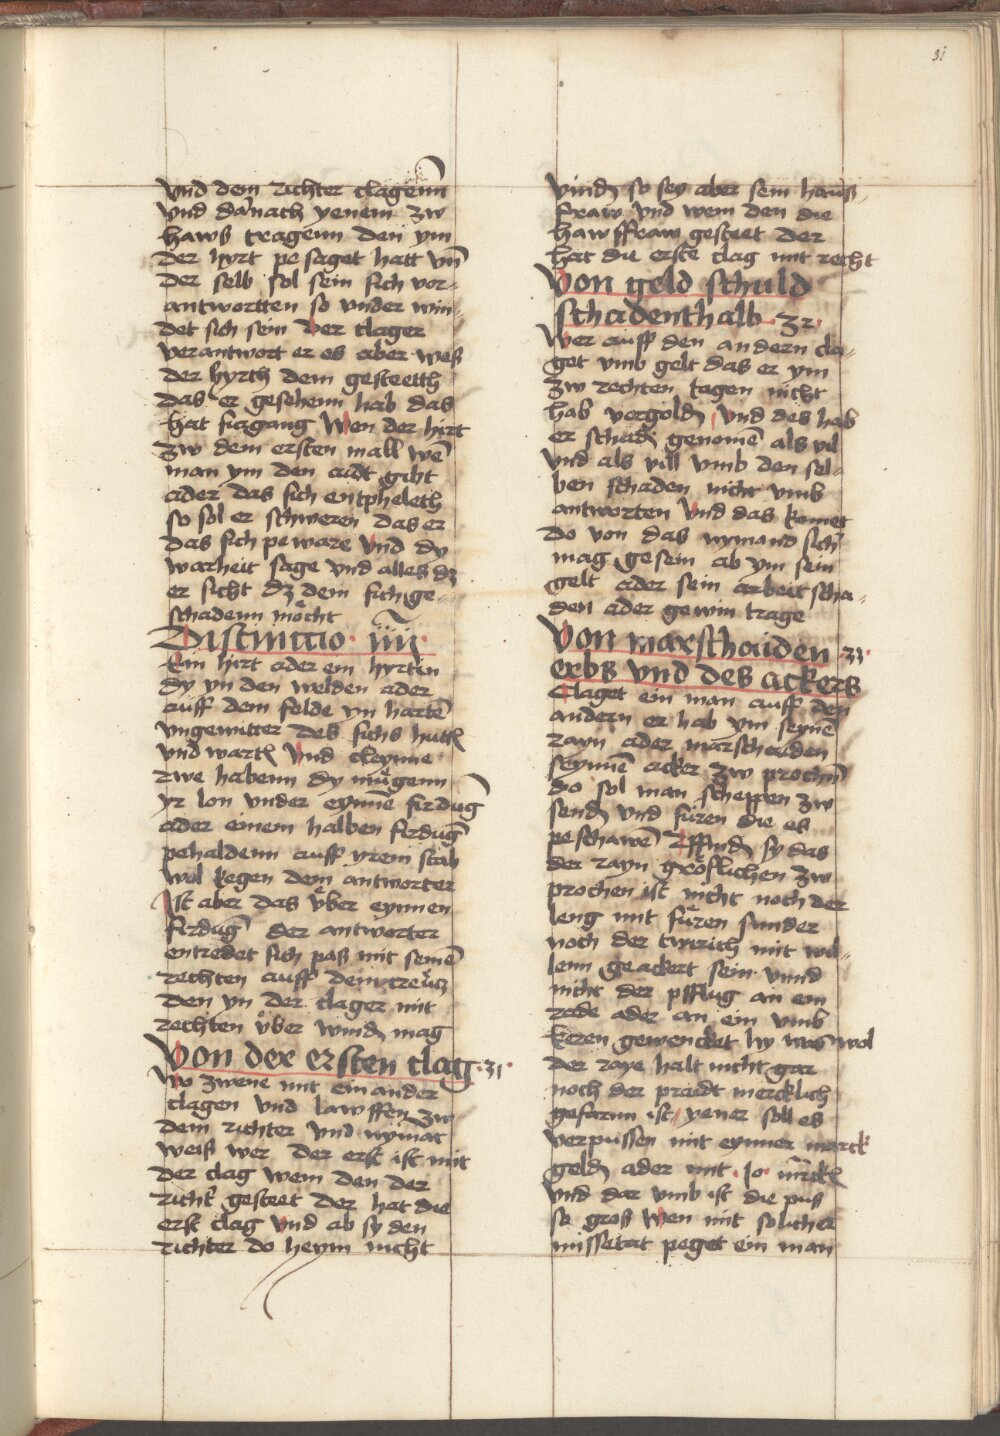 31
vnd dem richter clagenn
vnd darnach yenem zw
hawß tragenn den ym
der hyrt pe saget hatt vnd
der selb sol sein sich vor-
antwortten so vnder win-
det sich sein der clager
verantwort er es aber weß
der hyrth dem gesteetth
das er gesehenn hab das
hat furgang Wen der hirt
zw dem ersten mall wē
man ym den aidt gibt
ader das sich entpheleth
so sol er schweren das er
das sich pe ware vnd dy
warheit sage vnd alles dz
er sicht dz dem sich ge-
schadenn möcht
Distinctio · iiii ·
Ein hirt ader ein hyrtin
dy yn den welden ader
auff dem felde ym hartē
vngewitter des fichs huttē
vnd wartē vnd cleynne
rwe habenn dy mügenn
yr lon vnder eynnē firdūg
ader einem halben firdūg
pehaldenn auff yrem stab
wol kegen dem antworter
Ist aber das vber eynnen
firdūg der antworter
entredet sich paß mit semē
rechten auff dem creücz
den yn der clager mit
rechten vber windē mag
Von der ersten clag · 31 ·
Wo zwene mit ein ander
clagen vnd lawffen zw
dem richter vnd nymat
weiß wer der erst ist mit
der clag wem den der
richt' gesteet der hat die
erst clag vnd ab sy den
richter do heym nicht
vindē so sey aber sein hauß-
fraw vnd wem den die
hawßfraw gesteet der
hat die erste clag mit recht
Von geld schuld
schadenthalb · 32 ·
Wer auff den andern cla-
get vmb gelt das er ym
zw rechten tagen nicht
hab vergoldē vnd des hab
er schadē genomē als vil
vnd als vill vmb den sel-
ben schaden nicht vmb
antworten vnd das komet
do von das nymand sich'
mag gesein ab ym sein
gelt ader sein arbeit scha-
den ader gewin trage
Von marschaiden · 33 ·
erbs vnd des ackers
Claget ein man auff den
andern er hab ym seynē
rayn ader marschaiden
seynnē acker zw prochnn
do sol man scheppen zw
sendē vnd füren die es
pe schawē Vffindē sy das
der rayn gröflichen zw
prochen ist nicht noch der
leng mit füren sunder
noch der twirich mit wil-
lenn geackert sein vnnd
nicht der pfflug an ein
rede ader an ein vmb
keren gewencket hy was wol
der raye halt nicht gar
noch der praidt mercklich
gefarnn ist yener soll es
verpussen mit eynner marck
geldē ader mit · 10 · mrckē
vnd dar vmb ist die puß
so groß wen mit solicher
missetat peget ein man